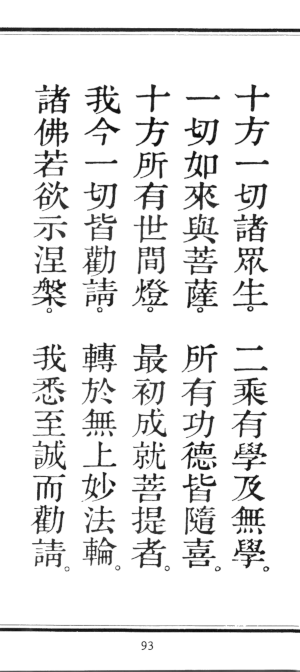 十方一切諸眾生。二乘有學及無學。
一切如來與菩薩。所有功德皆隨喜。
十方所有世間燈。最初成就菩提者。
我今一切皆勸請。轉於無上妙法輪。
諸佛若欲示涅槃。我悉至誠而勸請。
93